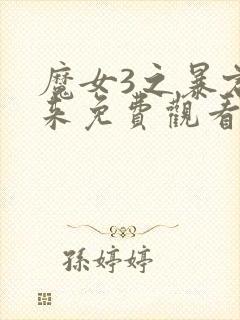 魔女3之暴君
来免費觀看
孫婷婷